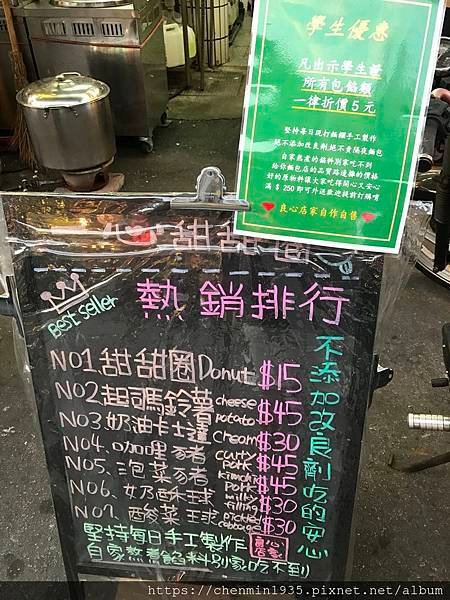 學生優惠
凡出示學生證
所有包餡類
一律折價5元
堅持每日現打麵糰手工製作
絕不添加改良劑絕不賣隔夜麵包
自家熬煮的餡料別家吃不到
給你麵包店的品質路邊的價格
好的原物料讓大家吃得開心又安心
滿$250即可外送歡迎提前訂購唷
良心店家自作自售
心甜甜圈
Best seller
熱銷排行
不添加改良劑吃的安心
NO1.甜甜圈Donut $15
NO2.起司馬鈴薯cheese potato $45
NO3.奶油卡士達Cream $30
NO4.咖哩豬curry pork $45
NO5.泡菜豬kimchi pork $45
NO6.奶酥球milky filling $30
NO7.酸菜球pickled cabbage $30
堅持每日手工製作 良心店家
自家熬煮餡料別家吃不到
https://chenmin1935.pixnet.net/album